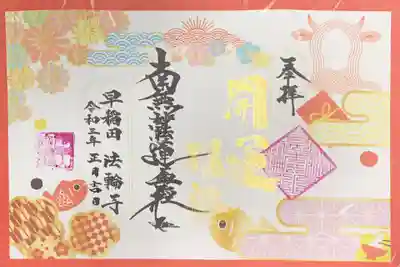 奉拝
開運
南無妙法蓮華経
早稲田 法輪寺
令和三年 正月吉日